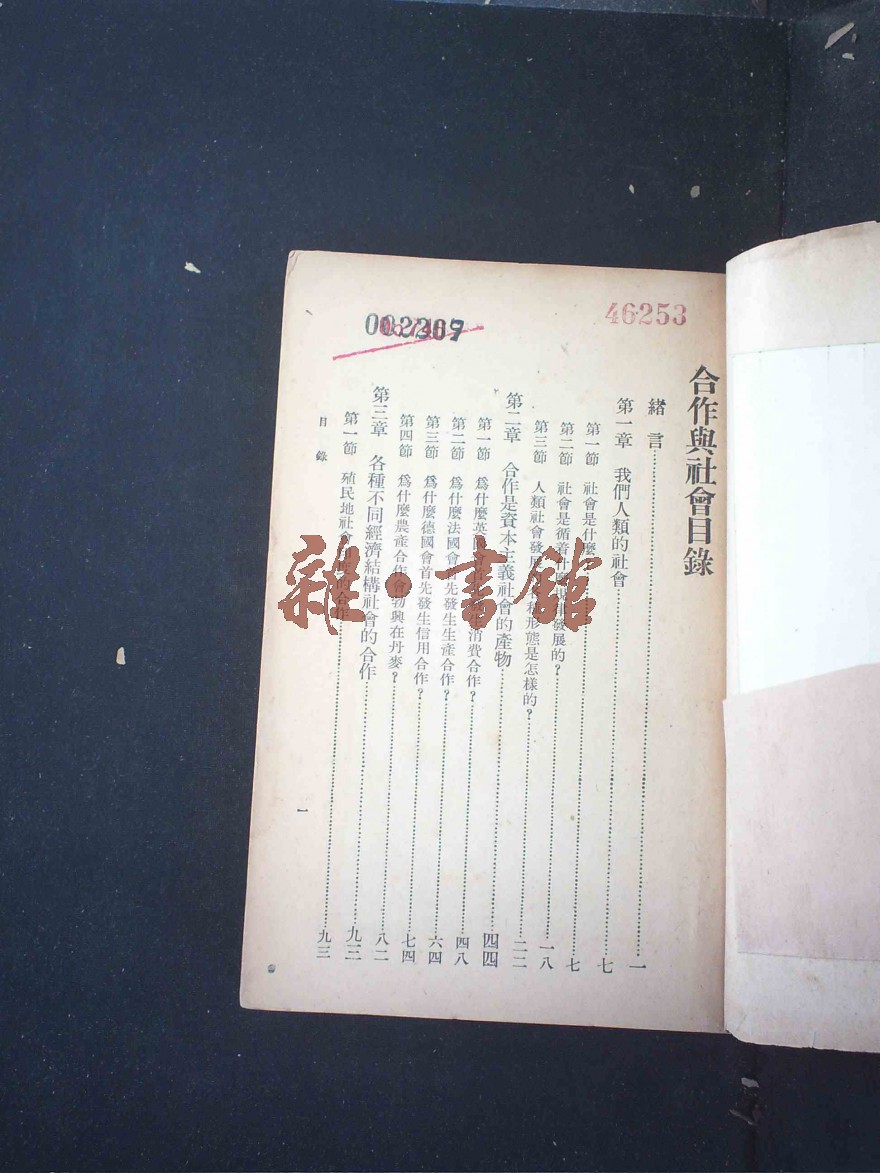 46253
合作與社會目錄
緒言……一
第一章 我們人類的社會……七
第一節 社會是什麼……七
第二節 社會是循着發展的？……一八
第三節 人類社會發形態是怎樣的？……二二
第二章 合作是資本主義社會的產物……四四
第一節 爲什麼英會消費合作？……四八
第二節 爲什麼法國會首先發生生產合作？……六四
第三節 爲什麼德國會首先發生信用合作？……七四
第四節 爲什麼農產合作會勃興在丹麥？……八二
第三章 各種不同經濟結構社會的合作……九三
第一節 殖民地社會的合作……九三
目錄
一
雜·書館